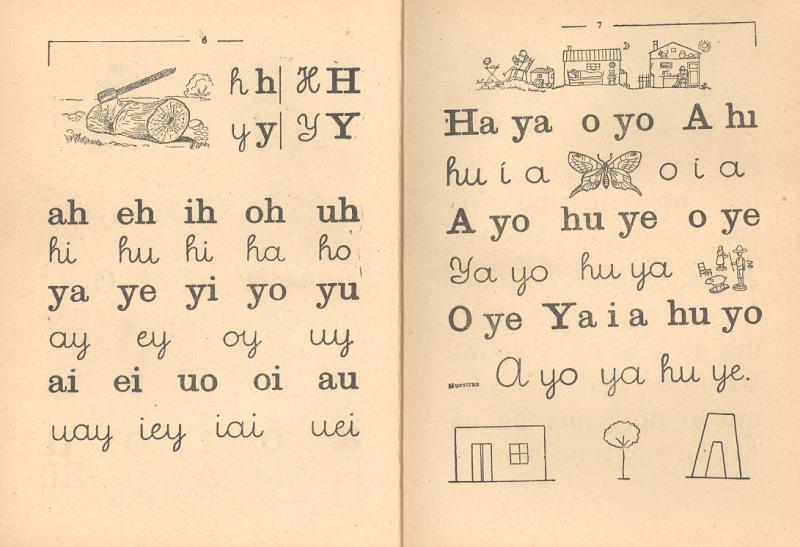 6
h h H H
y y Y Y
ah eh ih oh uh
hi hu hi ha ho
ya ye yi yo yu
ay ey oy uy
ai ei uo oi au
uay iey iai uei
7
Ha ya o yo A hi
hu í a o í a
A yo hu ye o ye
Ya yo hu ya
O ye Ya i a hu yo
Muestras. A yo ya hu ye.